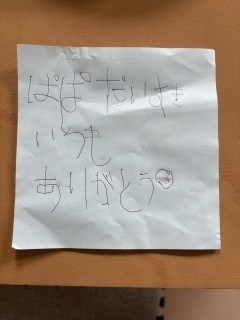 ぱぱ だいすき
いつも
ありがとう♡